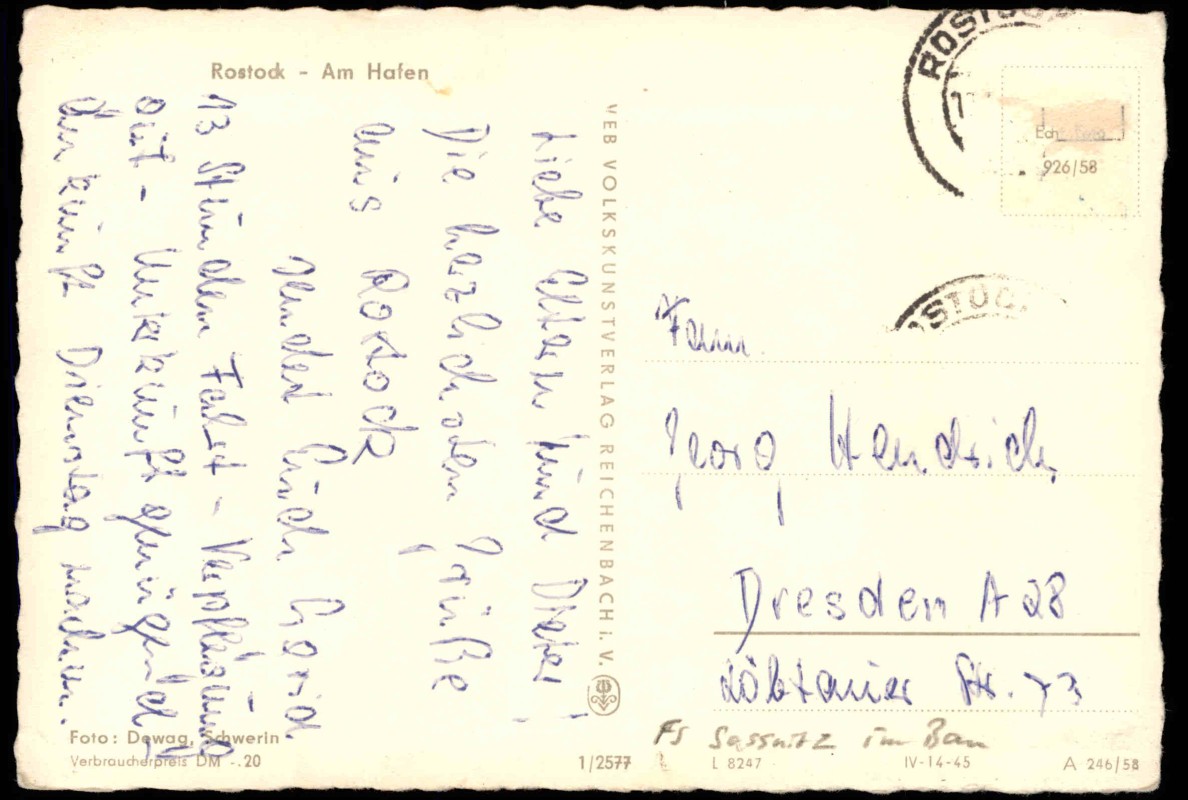 Rostock - Am Hafen
Liebe Eltern und Dieter!
Die herzlichsten Grüße
aus Rostock
sendet Euch
13 Stunden Fahrt - Verpflegung
gut - Unterkunft genügend
Dienstag
Foto: Dewag, Schwerin
Verbraucherpreis DM -.20
VEB VOLKSKUNSTVERLAG REICHENBACH i. V.
1/2577
ROSTOCK
Echt Foto
926/58
ROSTOCK
Fam.
Georg Hendrich
Dresden A 28
Löbtauer Str. 73
FS Sassnitz im Bau
L 8247 IV-14-45 A 246/58